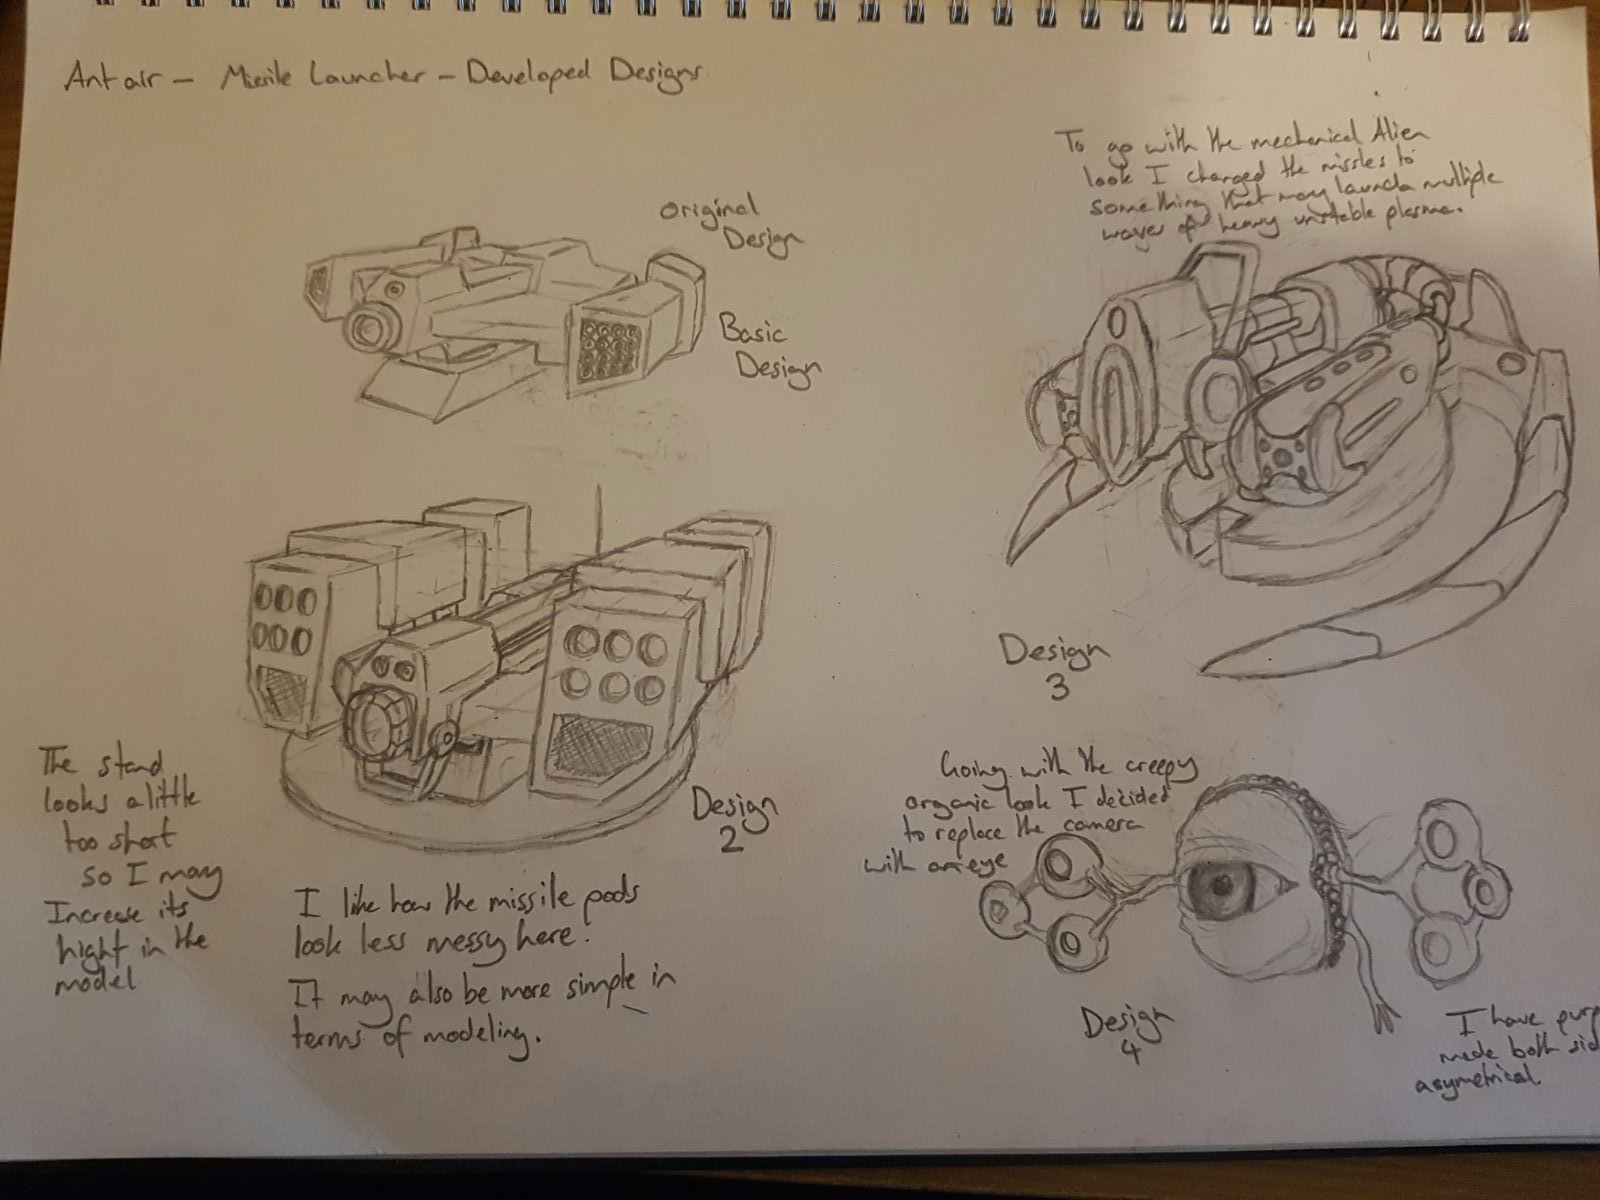 Antair - Missile Launcher - Developed Designs
Original
Design
Basic
Design
To go with the mechanical Alien
look I changed the missles to
something that may launch multiple
waves of heavy unstable plasma.
Design
3
The stand
looks a little
too short
so I may
Increase its
hight in the
model
Design
2
I like how the missile pods
look less messy here.
It may also be more simple in
terms of modeling.
Going with the creepy
organic look I decided
to replace the camera
with an eye
Design
4
I have purp
made both sid
asymetrical